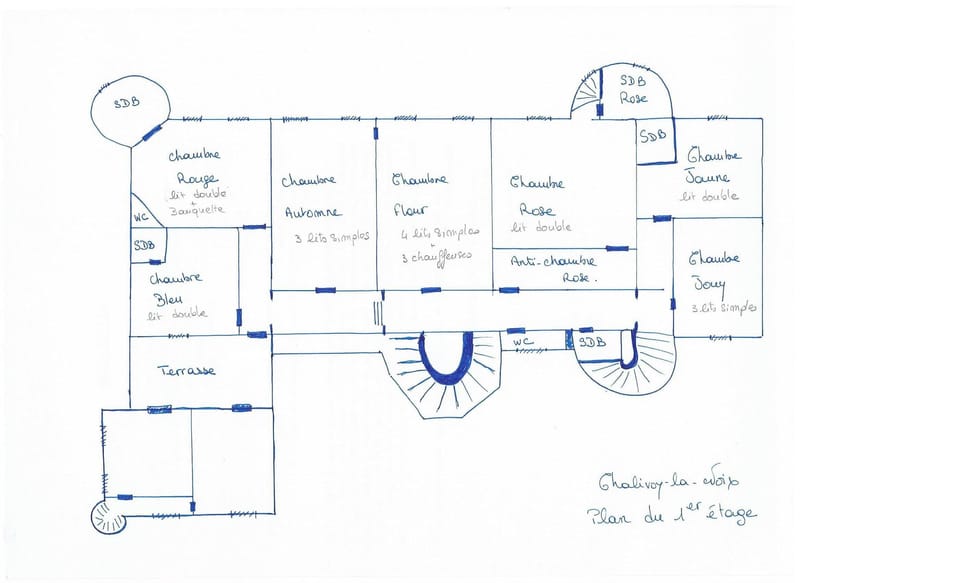 SDB
Chambre
Rouge
lit double
+
Banquette
WC
SDB
Chambre
Bleu
lit double
Terrasse
Chambre
Automne
3 lits simples
Chambre
Fleur
4 lits simples
+
3 chauffeuses
Chambre
Rose
lit double
Anti-chambre
Rose.
SDB
Rose
SDB
Chambre
Jaune
lit double
Chambre
Jouy
3 lits simples
WC
SDB
Chalivoy-la-Noix
Plan du 1er étage